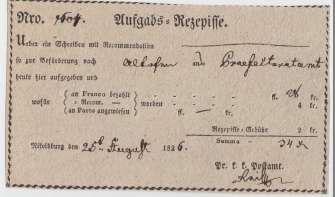 Nro. 1604. Aufgabs-Rezepisse.
Ueber ein Schreiben mit Recommendation
so zur Beförderung nach Altofen ans Praefecturatamt
heute hier aufgegeben und
(an Franco bezahlt) ff. 28 kr.
wofür („ Recom. —) worden 4 kr.
(an Porto angewiesen) ff. — kr.
Rezepisse-Gebühr 2 kr.
Summa 34 x
Nikolsburg den 25t August 1826.
Pr. k. k. Postamt.